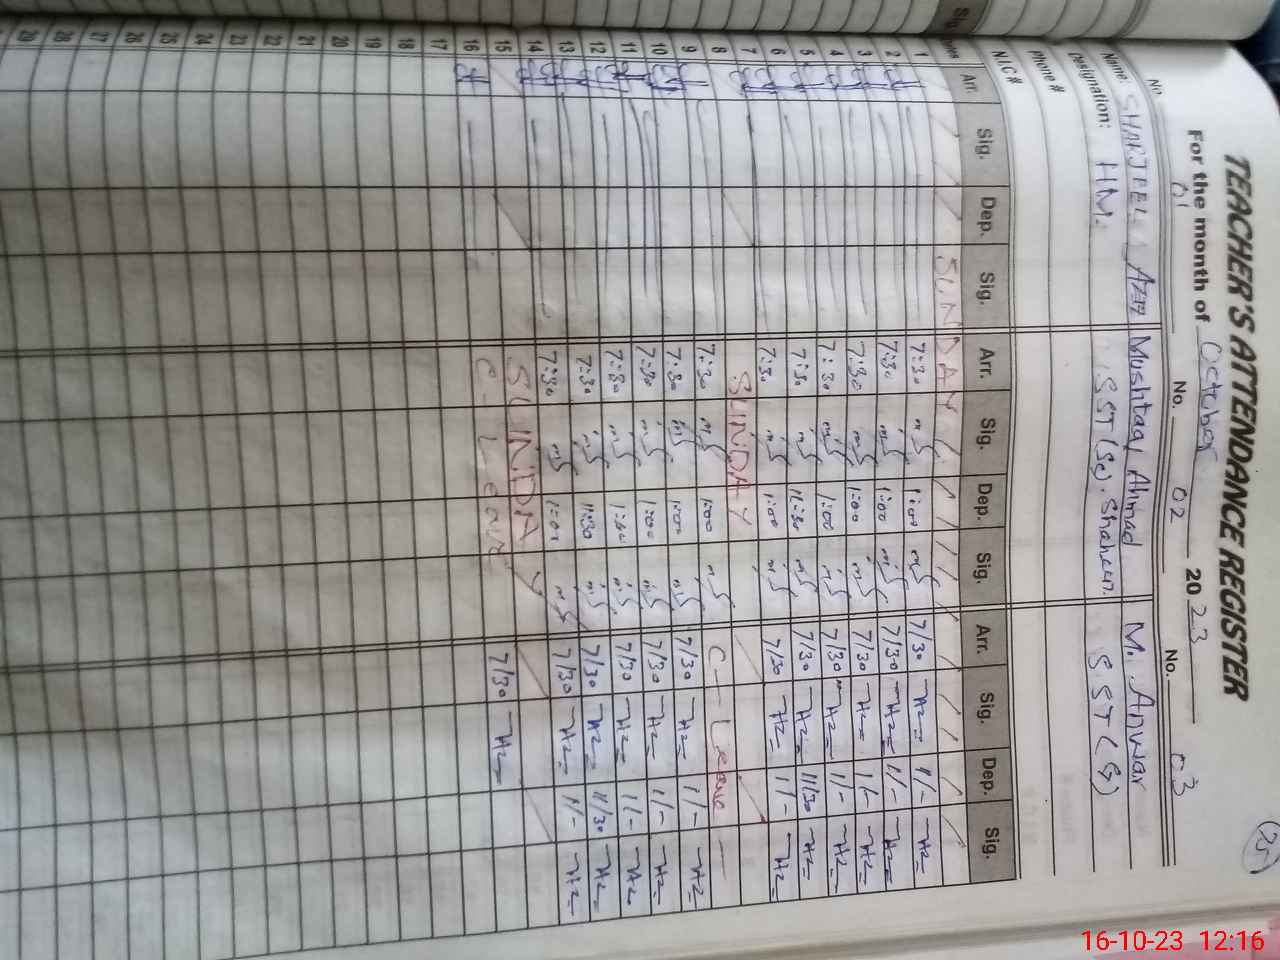 25
TEACHER'S ATTENDANCE REGISTER
For the month of October 2023
No. 01 No. 02 No. 03
Name: SHARJEEL AZIZ Mushtaq Ahmad M. Anwar
Designation: HM. SST (Sc). Shaheen. S.ST (G)
Phone #
N.I.C #
Arr. Sig. Dep. Sig. Arr. Sig. Dep. Sig. Arr. Sig. Dep. Sig.
SUNDAY
1 7:30 1:00 7/30 1/-
2 7:30 1:00 7/30 1/-
3 7:30 1:00 7/30 1/-
4 7:30 1:00 7/30 1/-
5 7:30 11:30 7/30 11/30
6 7:30 1:00 7/30 1/-
7 SUNDAY
8 7:30 1:00 C — Leave
9 7:30 1:00 7/30 1/-
10 7:30 1:00 7/30 1/-
11 7:30 1:00 7/30 1/-
12 7:30 11:30 7/30 11/30
13 7:30 1:00 7/30 1/-
14 SUNDAY
15 C - Leave 7/30
16
17
18
19
20
21
22
23
24
25
26
27
28
29
16-10-23 12:16